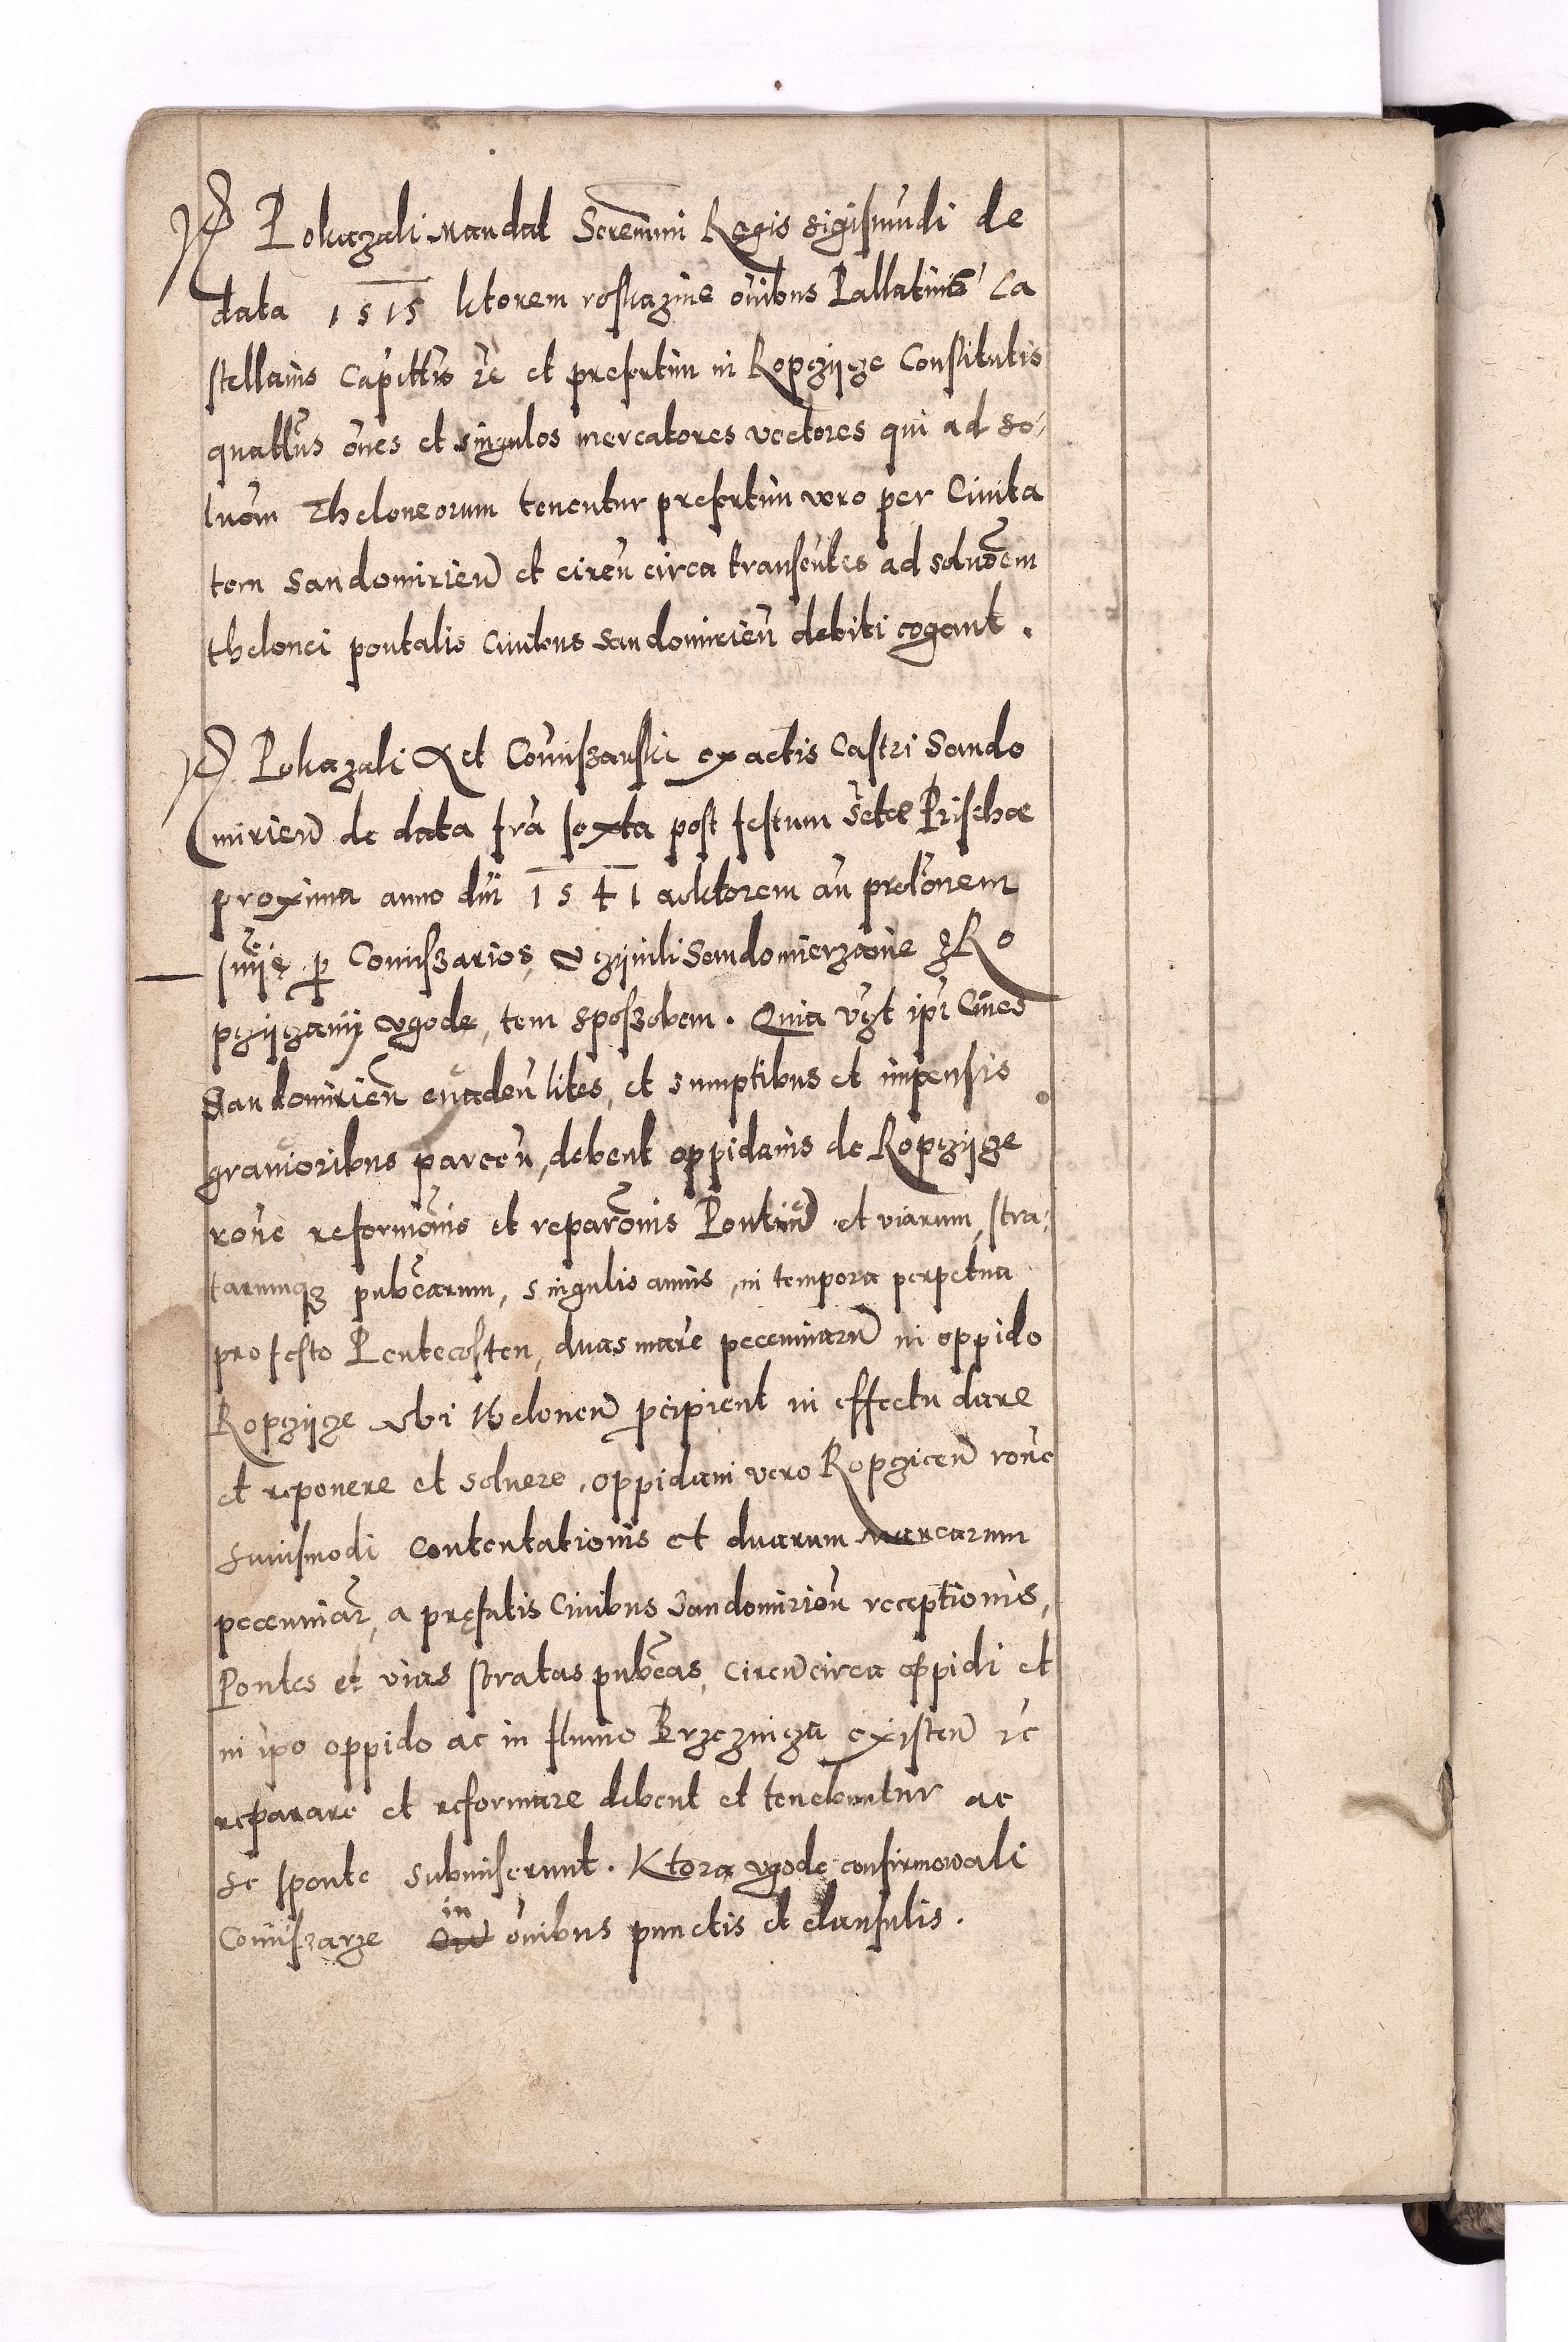 Pokazali mandat Serenmi Regis Sigismūdi de
data 1515 ktorem roskazuie oībus Pallatinis Ca
stellanis Capittis ꝛc et presertim in Ropczycze Constitutis
quattus ōnes et singulos mercatores vectores qui ad so-
luōm Theloneorum tenentur presertim vero per Ciuita
tem Sandomirien̄ et circū circa transeūtes ad soluōēm
thelonei pontalis Ciuibus Sandomirien̄ debiti cogant.
Pokazali Act Comiszarski ex actis Castri Sando
mirien̄ de data fra sexta post festum Sctæ Prischæ
proxima anno dni 1541 w ktorem an prolōnem
sniie p Comiszarios, Vczynili Sandomierzanie z Ro
pczyczany vgode, tem sposzobem. Quia vzt ipsi Ciues
Sandomirien̄ euaden̄ lites, et sumptibus et impensis
grauioribus parcen̄, debent oppidanis de Ropczycze
roñe reformōnis et reparōnis Pontiū et viarum, stra-
tarumqз pubcarum, singulis annis, in tempora perpetua
pro festo Pentecosten, duas marc peccuniarū in oppido
Ropczycze vbi thelonen̄ pcipient in effectu dare
et reponere et soluere, oppidani vero Ropczicen̄ roñe
huiusmodi contentationis et duarum marcarum
peccuniar, a pręfatis Ciuibus Sandomirien̄ receptionis,
Pontes et vias stratas pubcas, circūcirca oppidi et
in ipo oppido ac in flumo Brzeznicza existen̄ ꝛc
reparare et reformare debent et tenebuntur ac
se sponte submiserunt. Ktora vgodę confirmowali
Comiszarze in oībus punctis et clausulis.